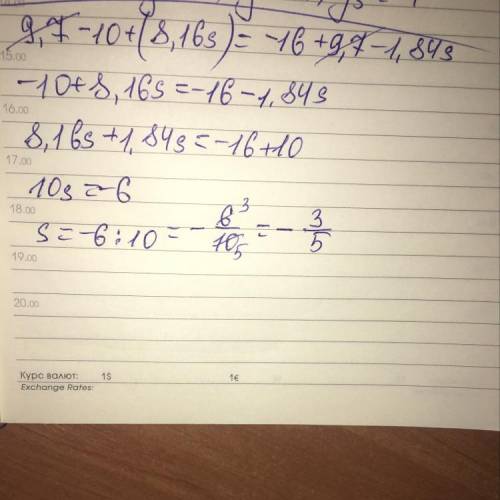 9,7 -10+(8,16s)= -16+9,7-1,84s
15.00
-10+8,16s=-16-1,84s
16.00
8,16s+1,84s=-16+10
17.00
10s=-6
18.00
s=-6:10=-6/10=-3/5
3
5
19.00
20.00
Курс валют: 1$ 1€
Exchange Rates: